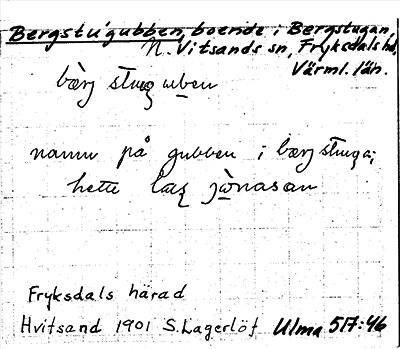 Bergstu'gubben, boende i Bergstugan,
N. Vitsands sn, Fryksdals hd,
Värml. län.
bærj stugguben
namn på gubben i bærj stuga;
hette laș jònasan
Fryksdals härad
Hvitsand 1901 S. Lagerlöf Ulma 517:46